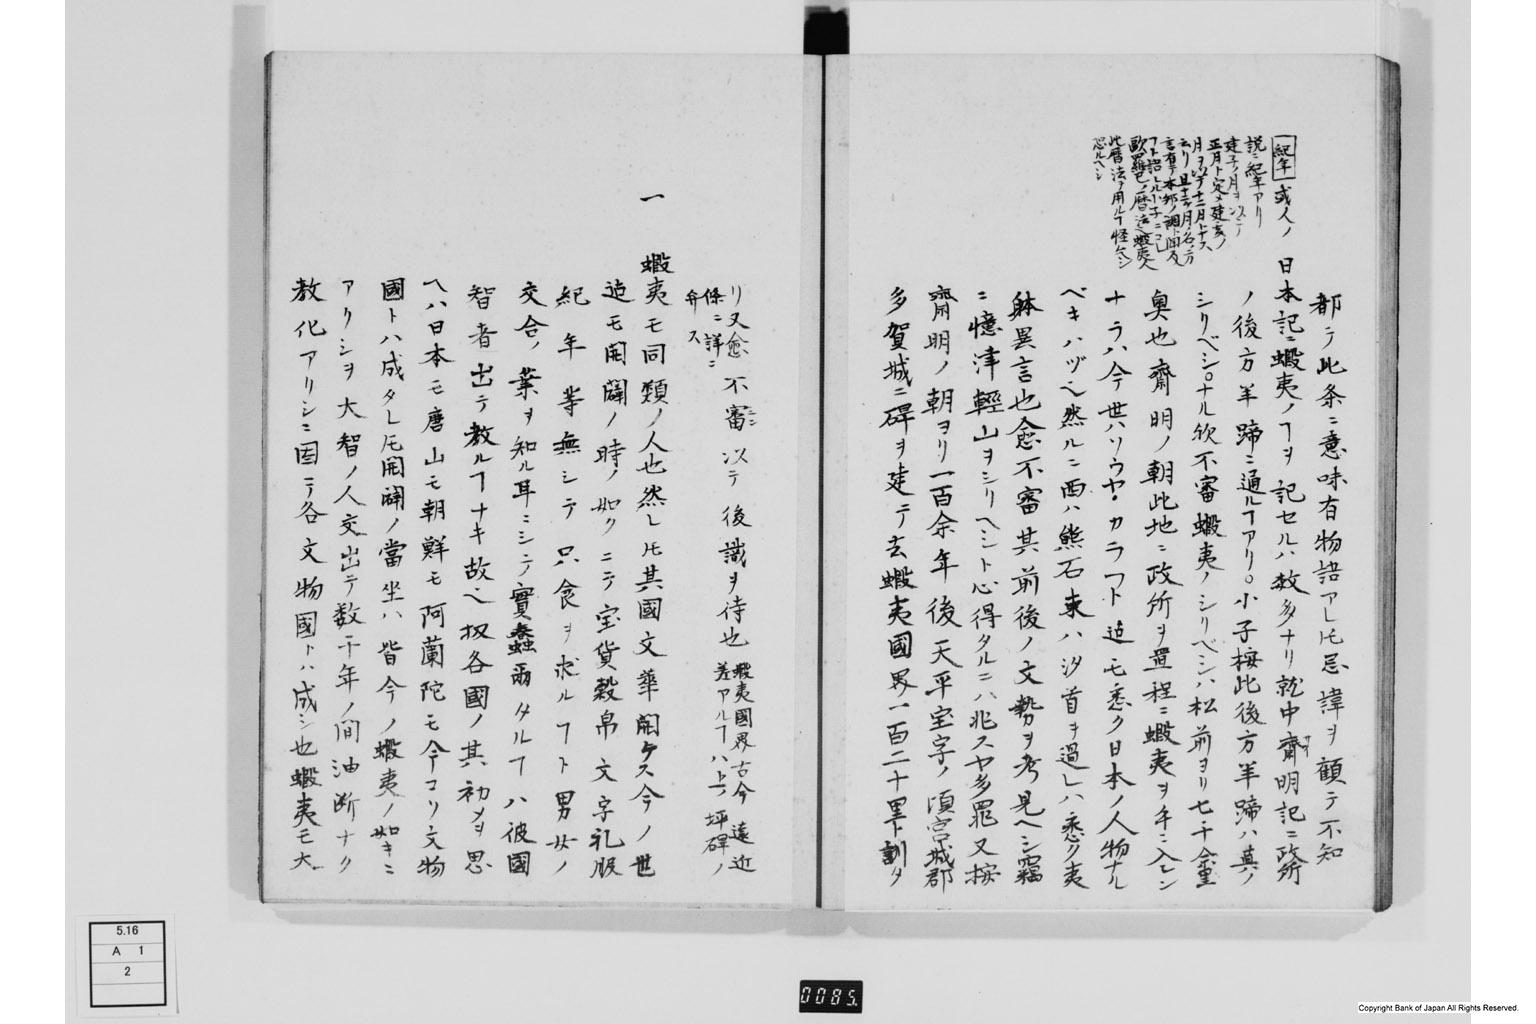 紀年 或人ノ
説ニ紀年アリ
建子ノ月ヲ以テ
正月ト定メ建亥ノ
月ヲ以テ十二月トナス
云リ且十二ヶ月ノ名ニテ
言有テ本邦ノ調ト同
フト語レル小子
歐羅巴ノ暦法也蝦夷人
此暦法ヲ用ルヿ怪ムヘシ
恐ルヘシ
都テ此条ニ意味有物語アレ𪜈忌諱ヲ顧テ不知
日本記ニ蝦夷ノヿヲ記セルハ数多ナリ就中齋明記ニ政所
ノ後方羊蹄ニ通ルヿアリ○小子按此後方羊蹄ハ真ノ
シリベシ○ナル欤不審蝦夷ノシリベシハ松前ヨリ七十余里
奥也齋明ノ朝此地ニ政所ヲ置程ニ蝦夷ヲ手ニ入レン
ナラハ今世ハソウヤ・カラフト迠モ悉ク日本ノ人物ナル
ベキハヅ也然ルニ西ハ熊石東ハ汐首ヲ過レハ悉ク夷
躰異言也愈不審其前後ノ文勢ヲ考見ヘシ竊
ニ憶津輕山ヲシリヘシト心得タルニハ非スヤ多罪又按
齋明ノ朝ヨリ一百余年後天平宝字ノ頃宮城郡
多賀城ニ碑ヲ建テ去蝦夷國界一百二十里ト訓タ
リ又愈不審以テ後識ヲ待也 蝦夷國界古今遠近
差アルヿハ上ノ坪碑ノ
條ニ詳ニ
弁ス
一 蝦夷モ同類ノ人也然レ𪜈其國文華開ケス今ノ世
迠モ開闢ノ時ノ如クニテ宝貨穀帛文字礼服
紀年等無シテ只食ヲ求ルヿト男女ノ
交合ノ業ヲ知ル耳ミシテ實蠢爾タルヿハ彼國
智者出テ教ルヿナキ故也扨各國ノ其初メヲ思
ヘハ日本モ唐山モ朝鮮モ阿蘭陀モ今コソ文物
國トハ成タレ𪜈開闢ノ當坐ハ皆今ノ蝦夷ノ如キニ
アリシヲ大智ノ人交出テ数千年ノ間油断ナク
教化アリシニ因テ各文物國トハ成シ也蝦夷モ大
5.16
A 1
2
0085.
Copyright Bank of Japan All Rights Reserved.